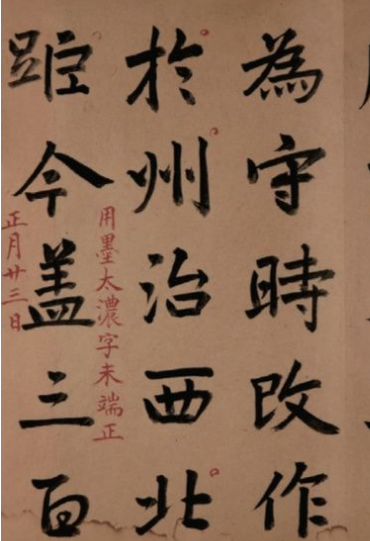 為守時改作
於州治西北
用墨太濃字未端正
距今盖三百
正月廿三日